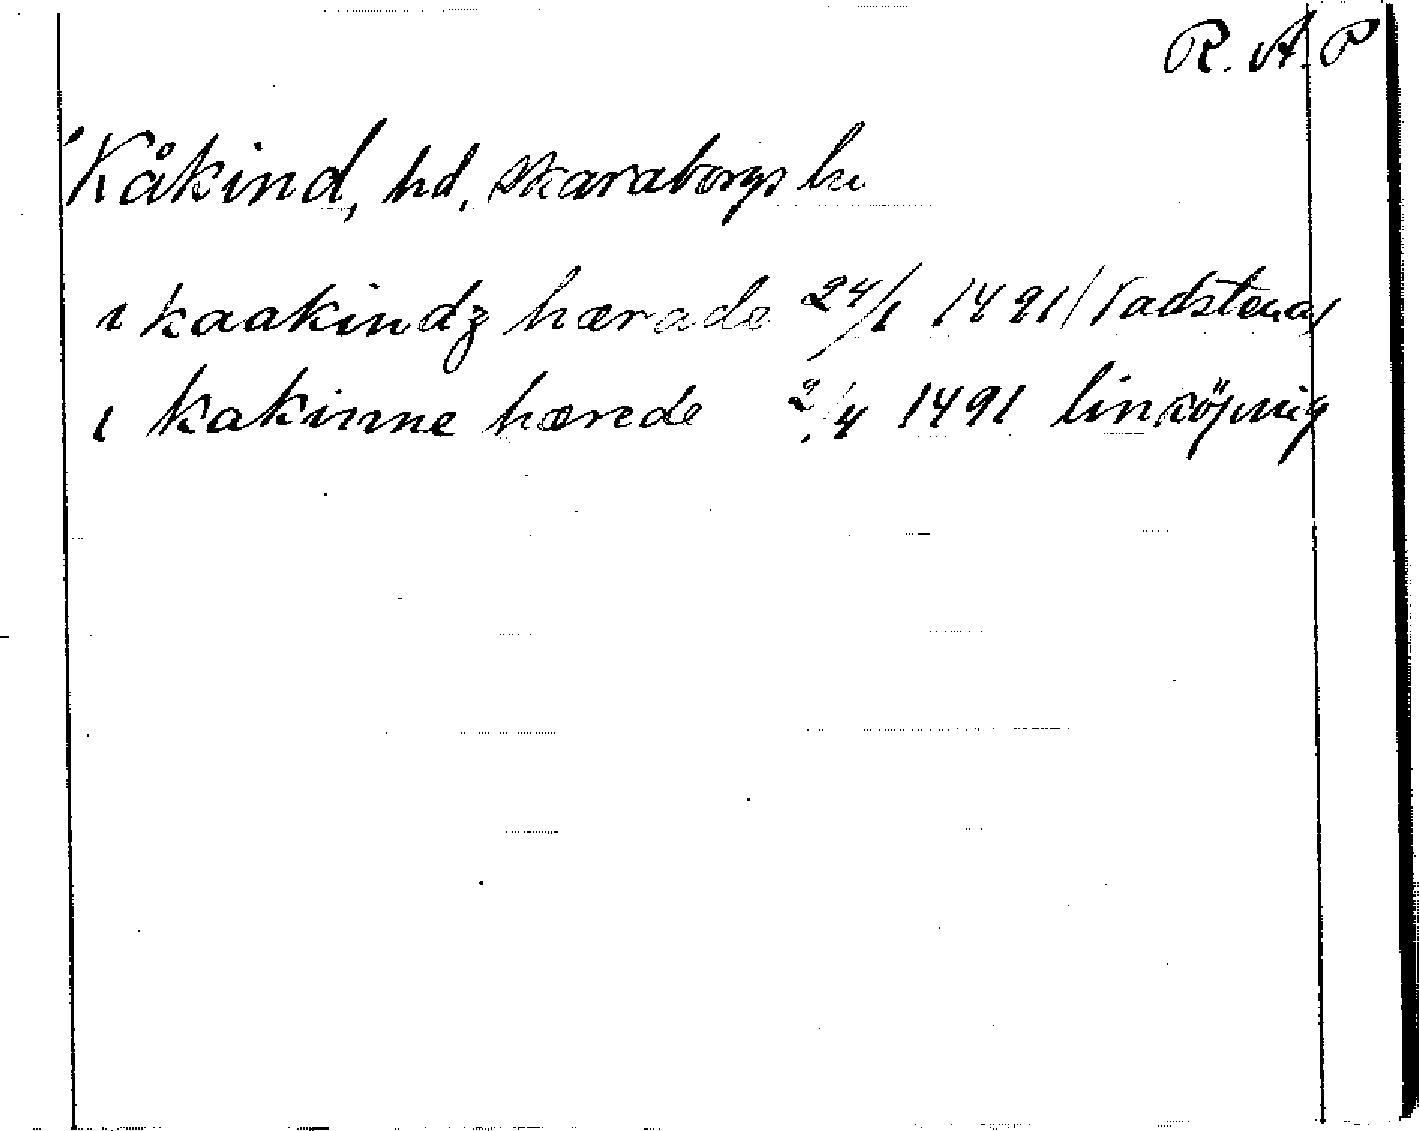 R. A. P
Kåkind, hd, Skaraborgs län
i kaakindz hærade 24/1 1491 (Vadstena)
i kakinne hærede 2/4 1491 linköping